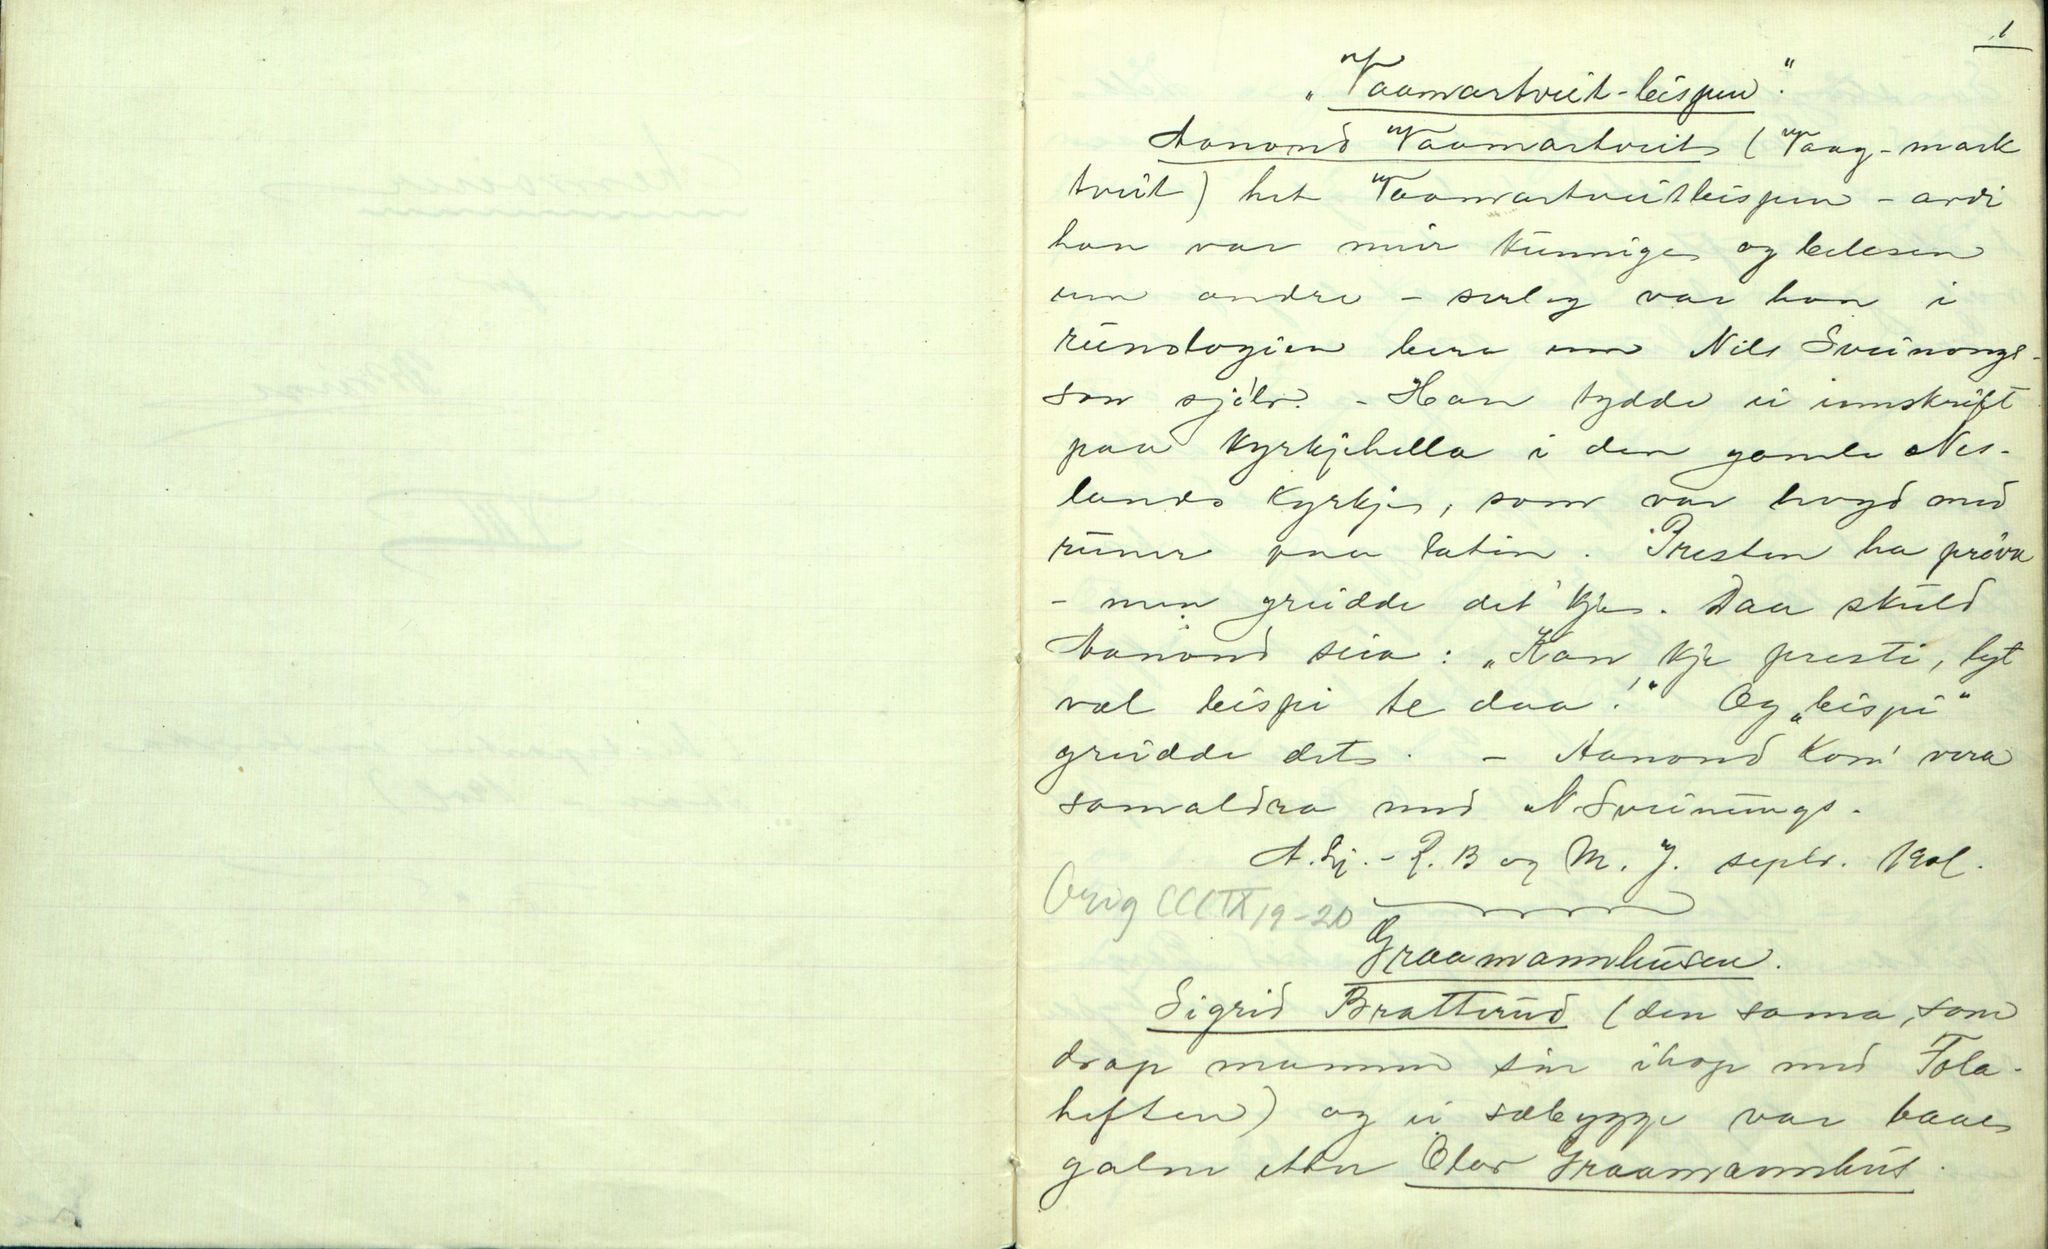 1
„Vaamartveit-bispen".
Aanond Vaamartveit (Vaag-mark
tveit) het Vaamartveitbispen - avdi
han var meir kunnige og belesen
enn andre - serleg var han i
runologien bere enn Nils Sveinongs-
son sjölv. - Han tydde ei innskrift
paa kyrkjehella i den gamle Nes-
lands kyrkje, som var hogd med
runer paa latin. Presten ha pröva
- men greidde det 'kje. Daa skuld
Aanond seia: „Kan 'kje presti, lyt
væl bispi te daa!" Og „bispi"
greidde det. - Aanond kom' vera
samaldra med N. Sveinungs.
A. Lj. - R. B og M. J. septr. 1901.
Orig CCCIX 19-20
Graamannhusen.
Sigrid Bratterud (den sama, som
drap mannen sin ihop med Fola-
heften) og ei sæbyggje var baae
galne etter Olav Graamannhus.